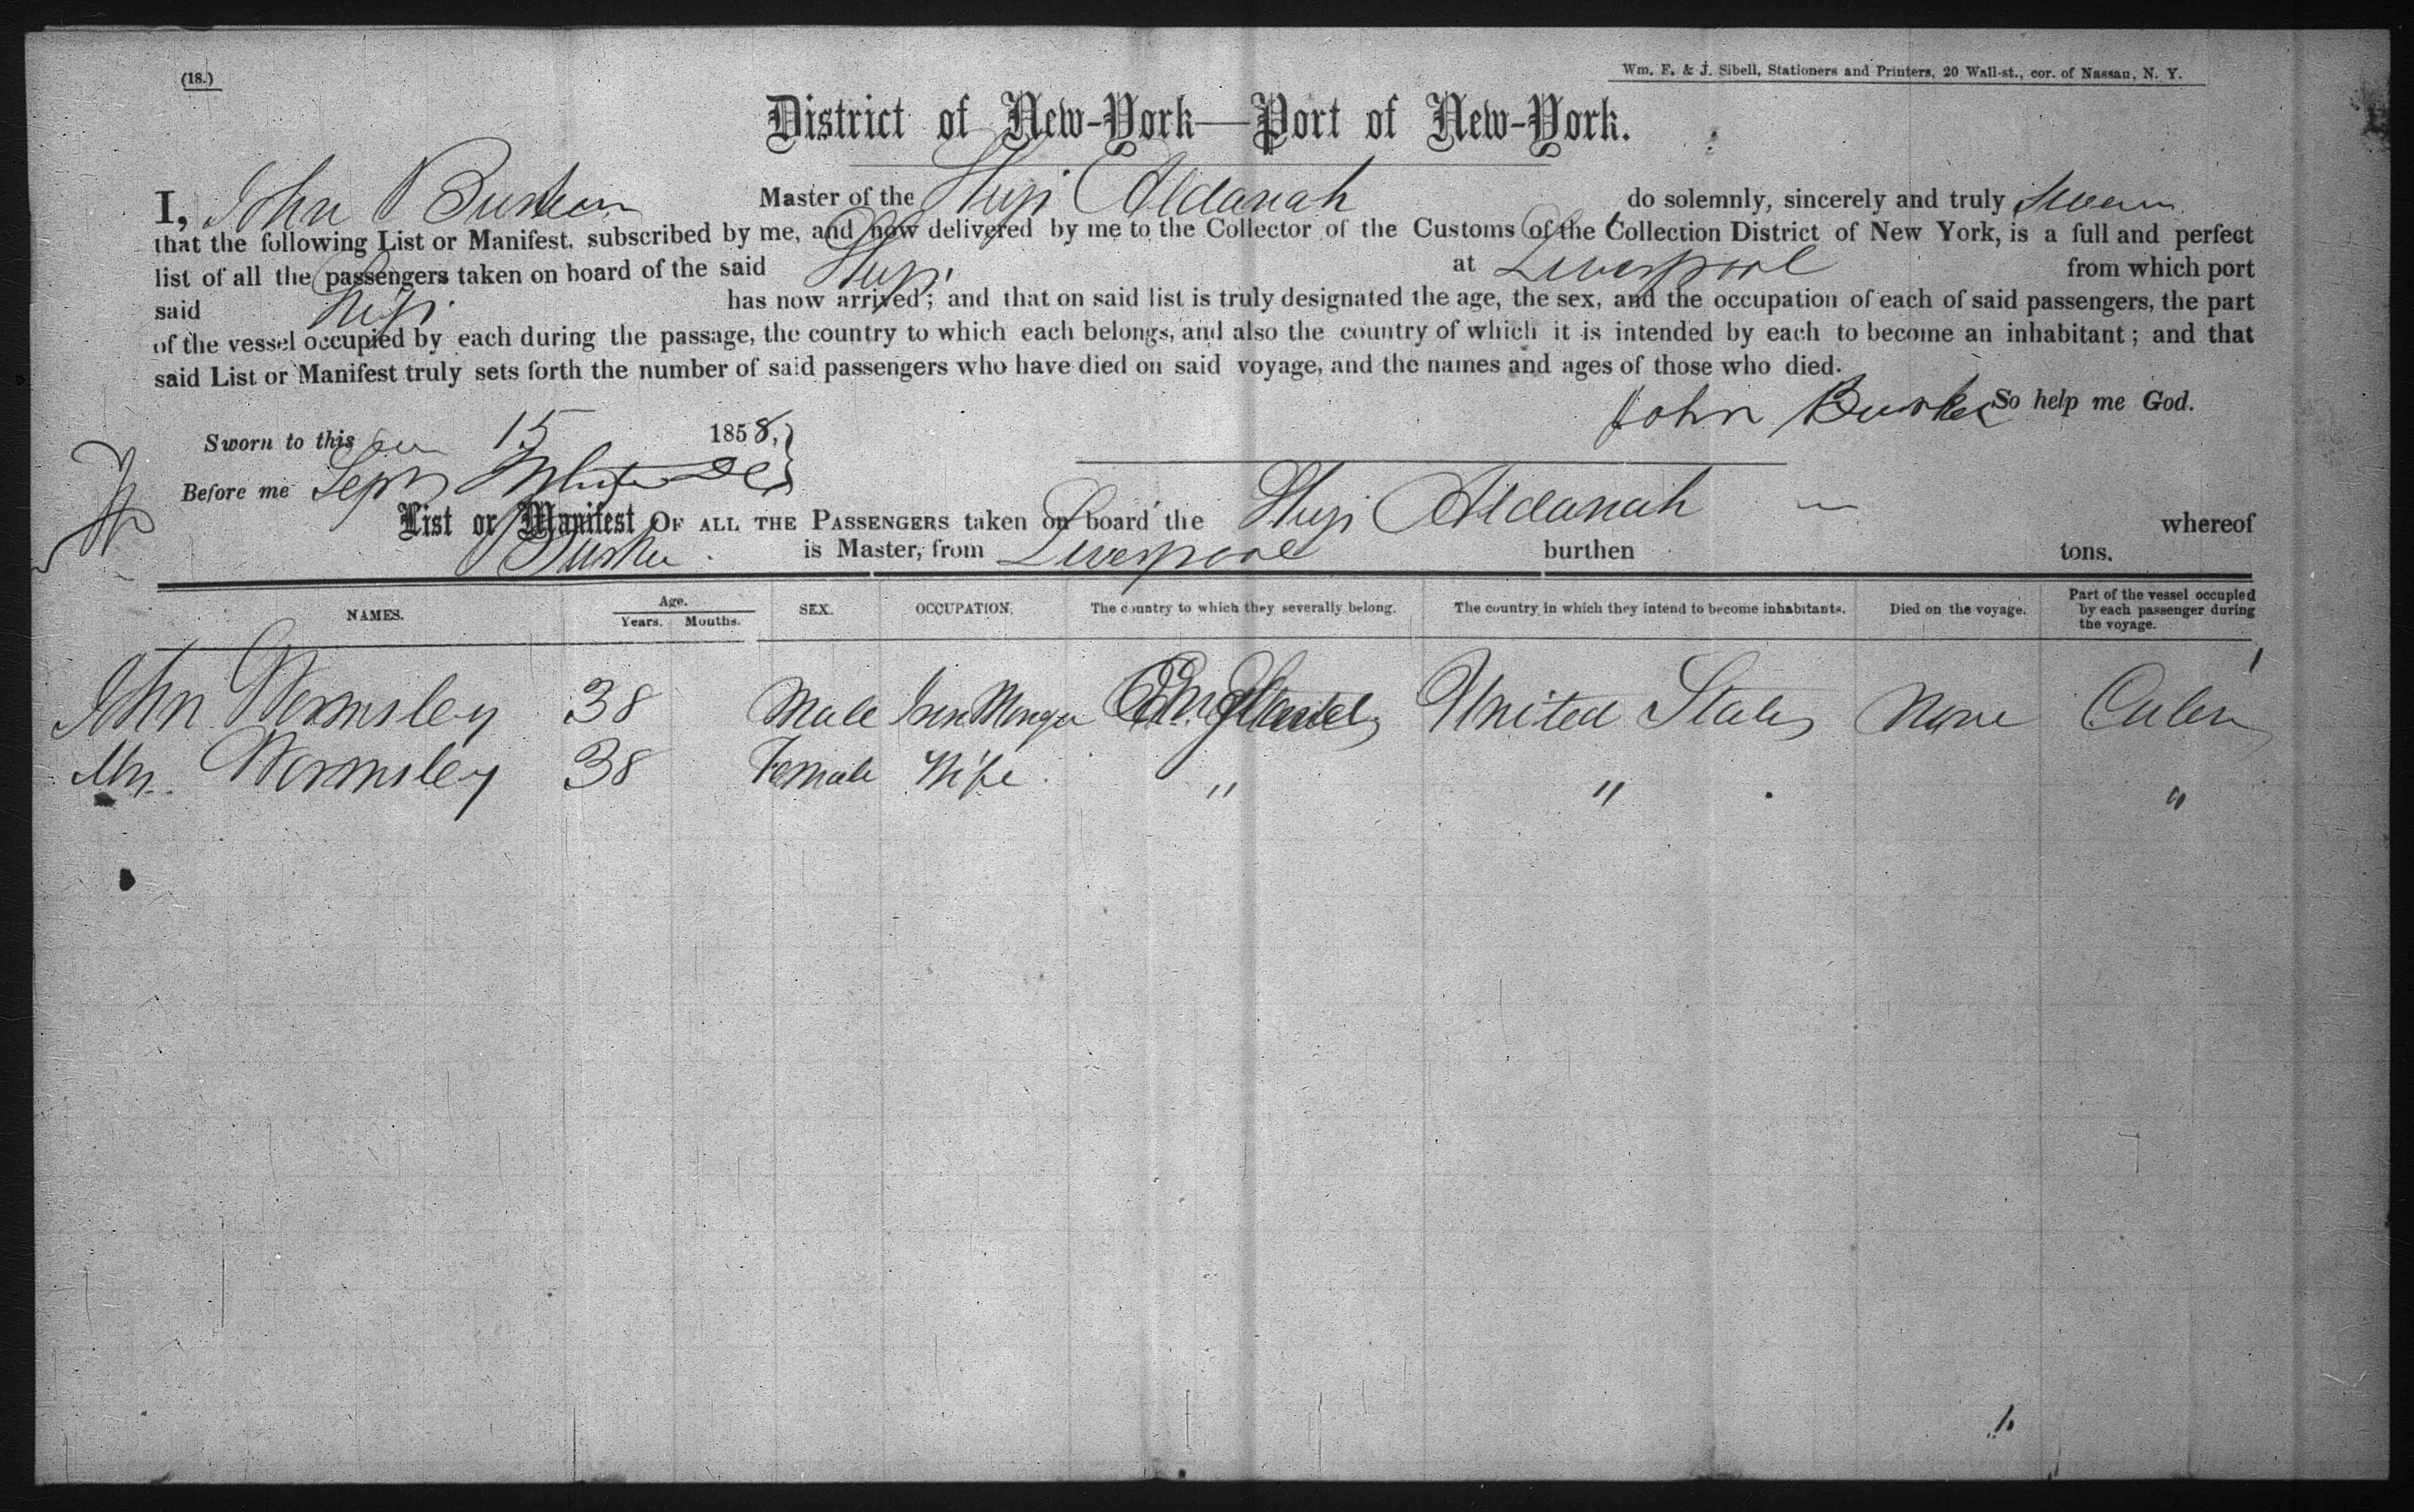 (18.)
Wm. F. & J. Sibell, Stationers and Printers, 20 Wall-st., cor. of Nassau, N. Y.
District of New-York—Port of New-York.
I, John Master of the Ship Aldanah do solemnly, sincerely and truly Swear
that the following List or Manifest, subscribed by me, and now delivered by me to the Collector of the Customs of the Collection District of New York, is a full and perfect
list of all the passengers taken on board of the said Ship at Liverpool from which port
said Ship has now arrived; and that on said list is truly designated the age, the sex, and the occupation of each of said passengers, the part
of the vessel occupied by each during the passage, the country to which each belongs, and also the country of which it is intended by each to become an inhabitant; and that
said List or Manifest truly sets forth the number of said passengers who have died on said voyage, and the names and ages of those who died.
John So help me God.
Sworn to this 15 1858,
Before me
List or Manifest OF ALL THE PASSENGERS taken on board the Ship Aldanah whereof
is Master, from Liverpool burthen tons.
NAMES. Age. Years. Mouths. SEX. OCCUPATION. The country to which they severally belong. The country in which they intend to become inhabitants. Died on the voyage. Part of the vessel occupied by each passenger during the voyage.
John Wormsley 38 Male Iron Monger England United States None Cabin
Mrs. Wormsley 38 Female Wife " " "